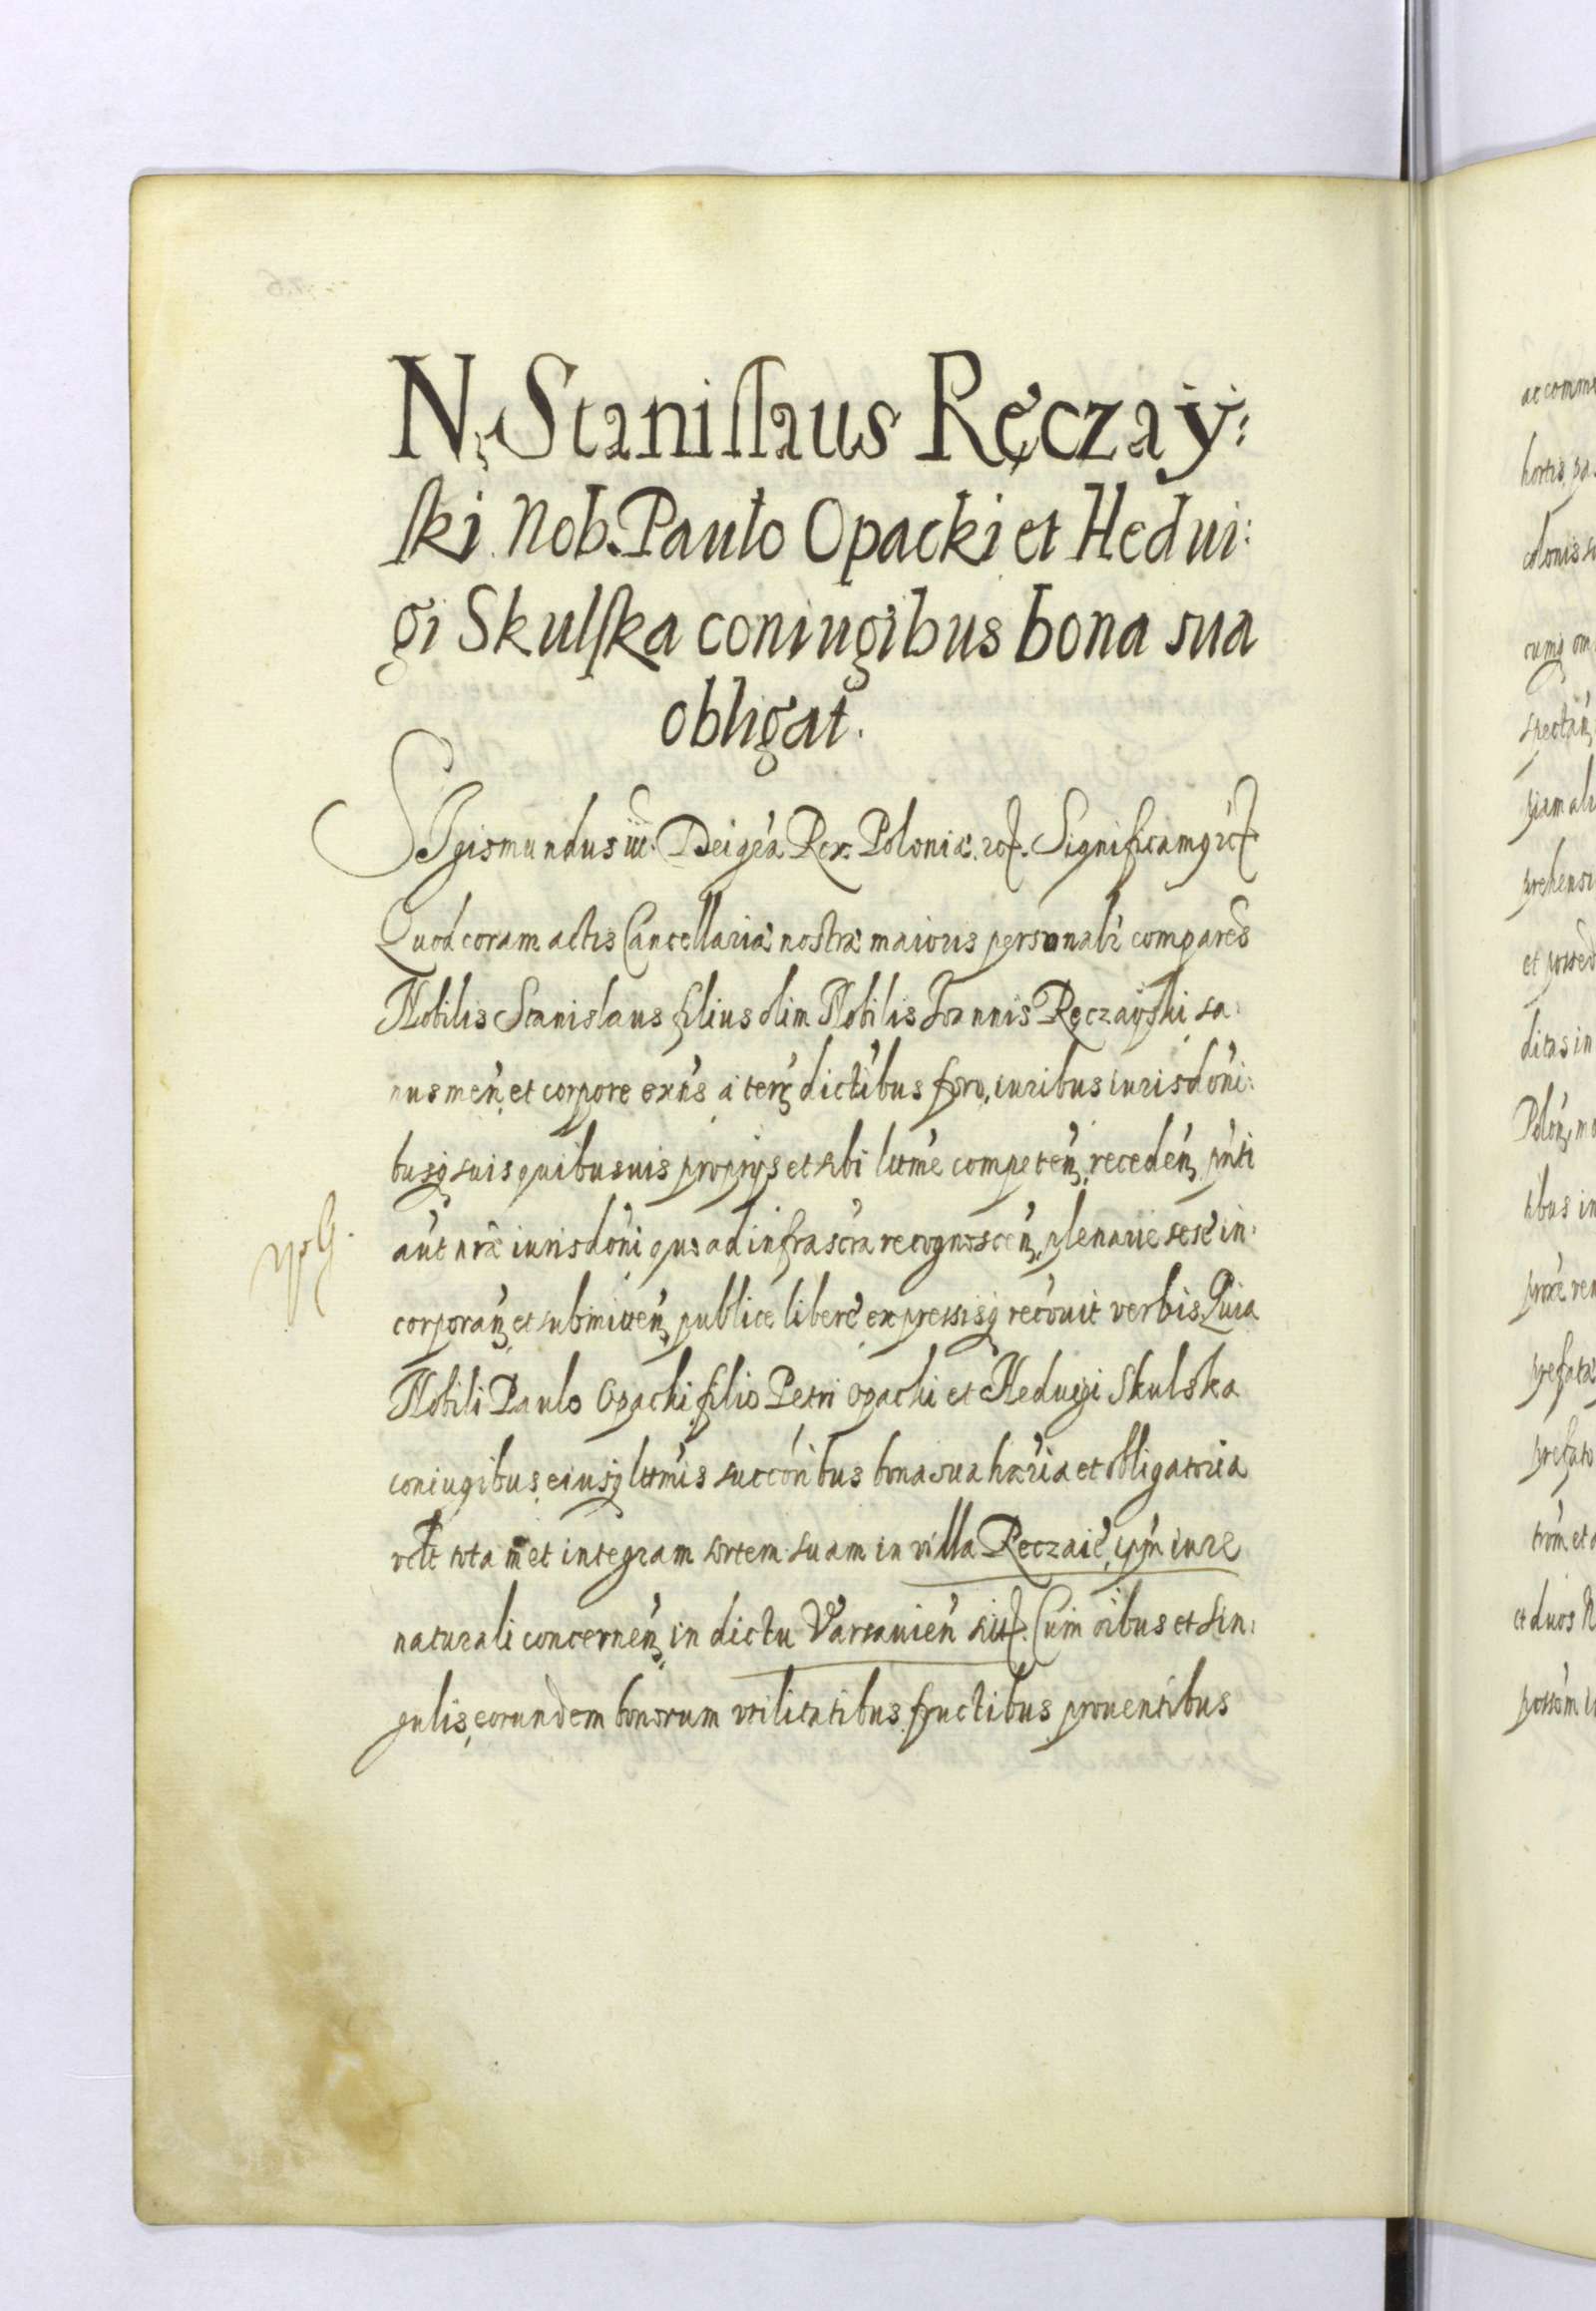 N. Stanislaus Ręczay:
ski Nob. Paulo Opacki et Hedui:
gi Skulska coniugibus bona sua
obligat.
Sigismundus iii. Dei gr̃a Rex Poloniæ. etc. Significamq̃ etc
Quod coram actis Cancellariæ nostræ maioris personalr̃ comparẽs
Nobilis Stanislaus filius olim Nobilis Joannis Ręczayski sa:
nus men̄, et corpore exñs a terr̨ dictibus foro, iuribus iurisdõni:
busq̨ suis quibusuis proprijs et sibi lttme competeñ, recedeñ, pñti
aũt nr̃æ iurisdõni quo ad infrascr̃a recognosceñ, plenarie sese in:
corporañ, et submitteñ, publice libere expressisq̨ recõuit verbis, Quia
Nobili Paulo Opacki filio Petri Opacki et Heduigi Skulska
coniugibus, eiusq̨ lttmis succõribus bona sua hæria et obligatoria
vdlt tota m̃ et integram sortem suam in villa Reczaie, ipm̃ iure
naturali concerneñ, in dictu Varsauieñ sit. Cum oĩbus et sin:
gulis, eorundem bonorum vtilitatibus, fructibus, prouentibus
ac comm
hortis, pa
colonis
cumq̨ om
spectañ
piam al
prehensi
et possed
ditas in
Poloñ, m
tibus in
prefata
prefato
trõm et
et duos
possõm